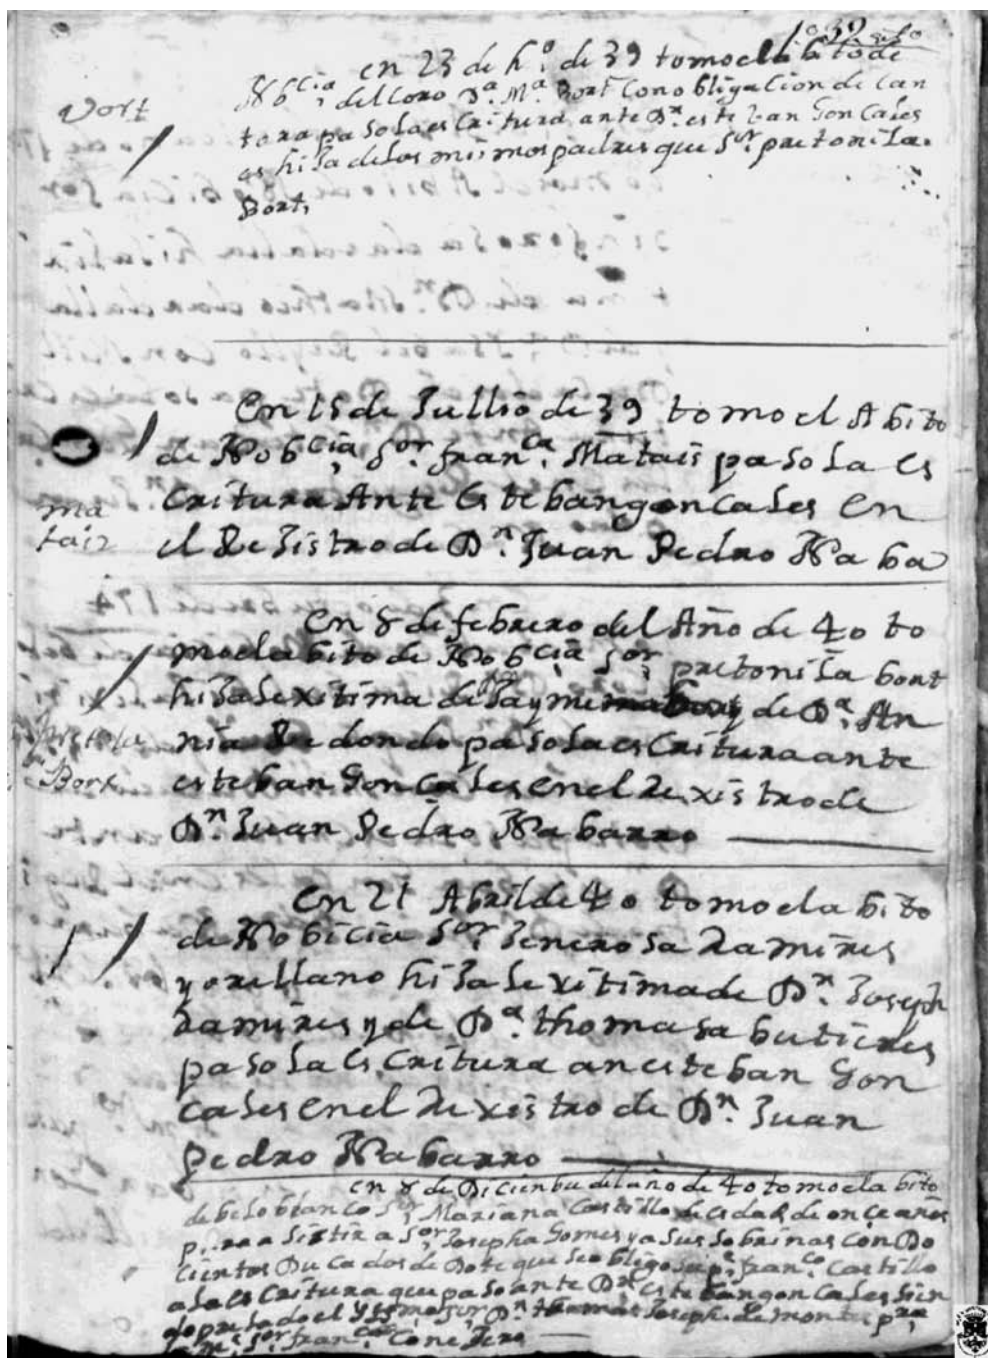 39
en 23 de h.º de 39 tomo el abito de
Nobcia, del Coro D.ª M.ª Bort Con obligacion de Can
tora paso la esCritura ante D.n esteban Goncales
es hiJa de los mismos padres que Sor. pretoniLa
Bort,
Vort
En 15 de Jullio de 39 tomo el Abito
de Nobcia, Sor. fran.ca Matais paso La es
Critura Ante Esteban goncaLes En
el ReJistro de D.n Juan Pedro Naba
ma
tais
En 8 de febrero del Año de 40 to
mo el abito de Nobcia Sor, pretoniLa bort
hiJa Lexitima de Jayme bort y de D.ª An
nia Redondo paso La esCritura ante
esteban Goncales en el Rexistro de
D.n Juan Pedro Nabarro
Bort
En 21 Abril de 40 tomo el abito
de Nobicia Sor. Jenerosa Ramires
y orellano hiJa Lexitima de D.n Joseph
Ramires y de D.ª thomasa butieres
paso La esCritura an esteban Gon
cales en el Rexistro de D.n Juan
Pedro Nabarro
en 8 de DiCienbre del año de 40 tomo el abito
de belo blanco Sor, Mariana Castillo de edad de onçe años
para asistir a Sor, Josepha Gomes y a sus sobrinas con Do
cientos Ducados de Dote que se obligo su p.e fran.co Castillo
a La esCritura que paso ante D.n esteban goncales sien
do prelado el Yllmo Sor, D.n thomas Joseph de montes p.ra,
Sor, fran.ca